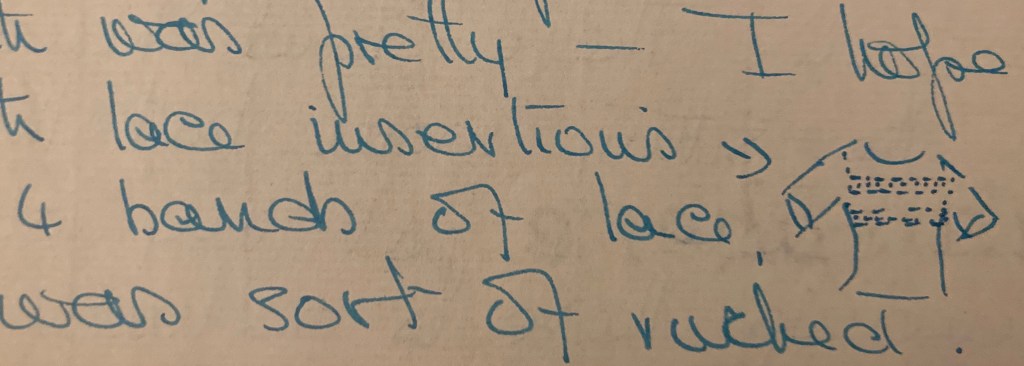 was pretty – I hope
lace insertions →
4 bands of lace.
was sort of ruched.